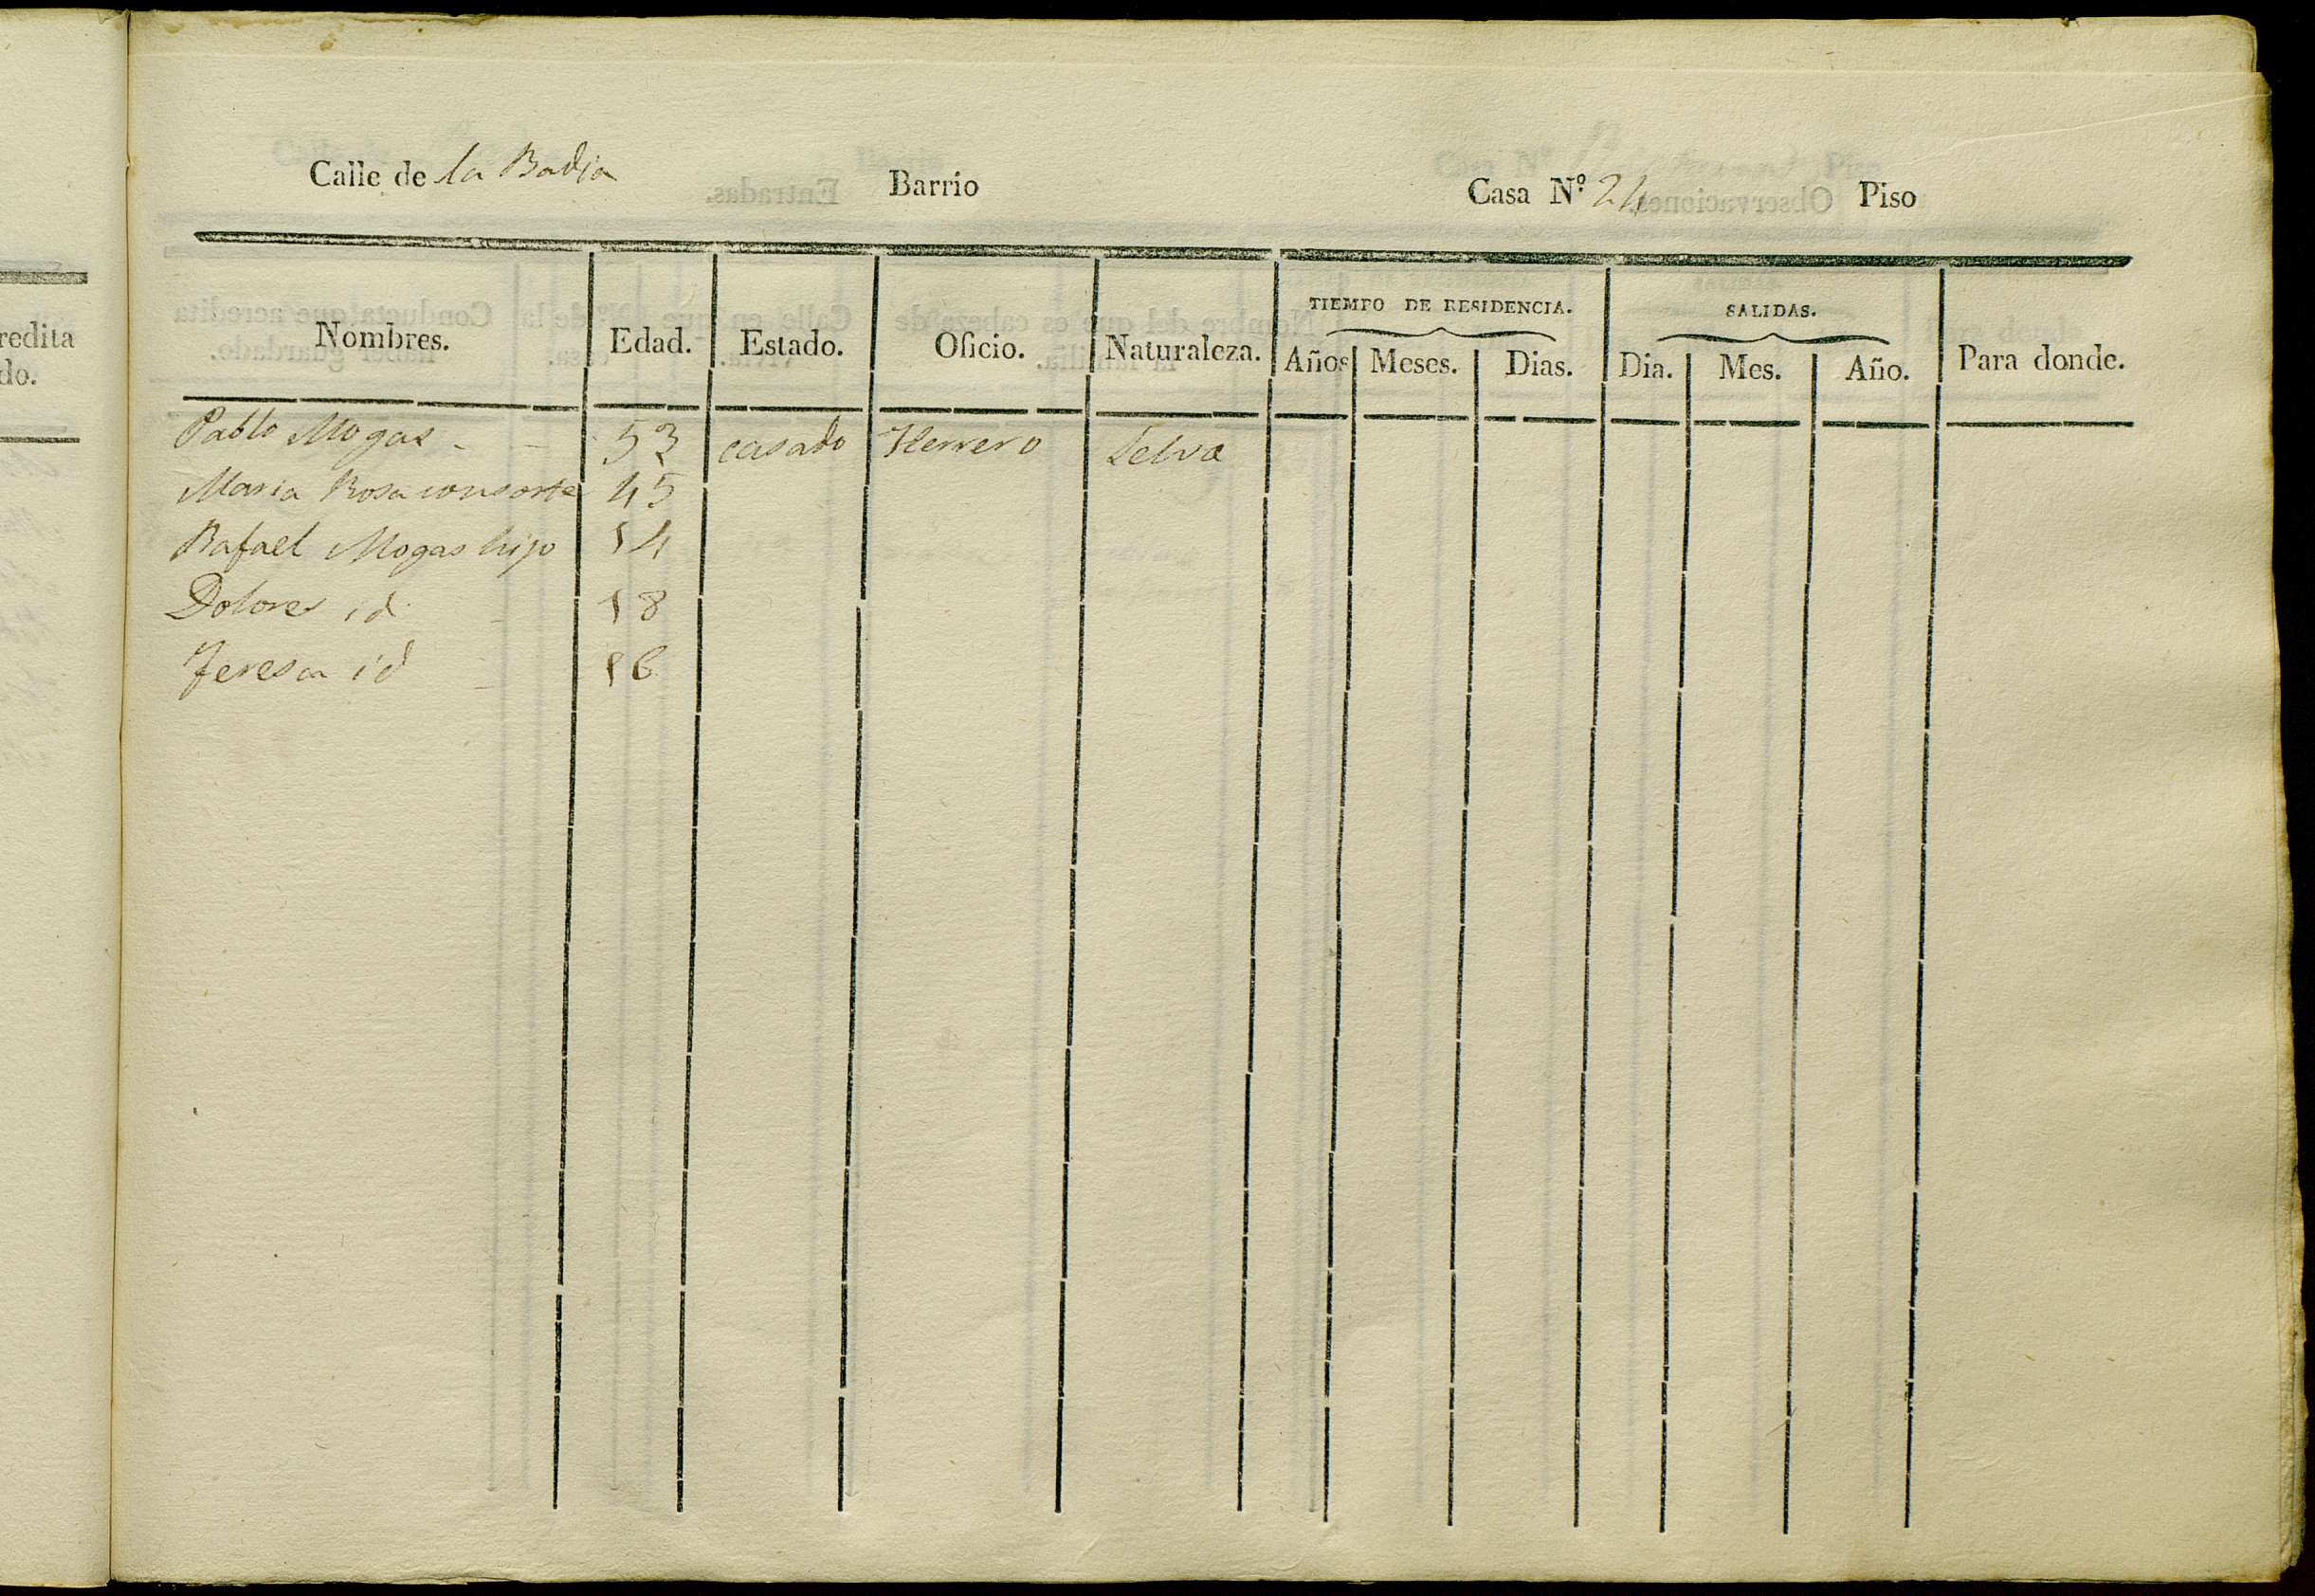 Calle de la Badia Barrio Casa Nº 24 Piso
TIEMPO DE RESIDENCIA. SALIDAS.
Nombres. Edad. Estado. Oficio. Naturaleza. Años Meses. Dias. Dia. Mes. Año. Para donde.
redita
do.
Pablo Mogas - 53 casado Herrero Selva
Maria Rosa consorte 45
Rafael Mogas hijo 14
Dolores id 18
Teresa id 16